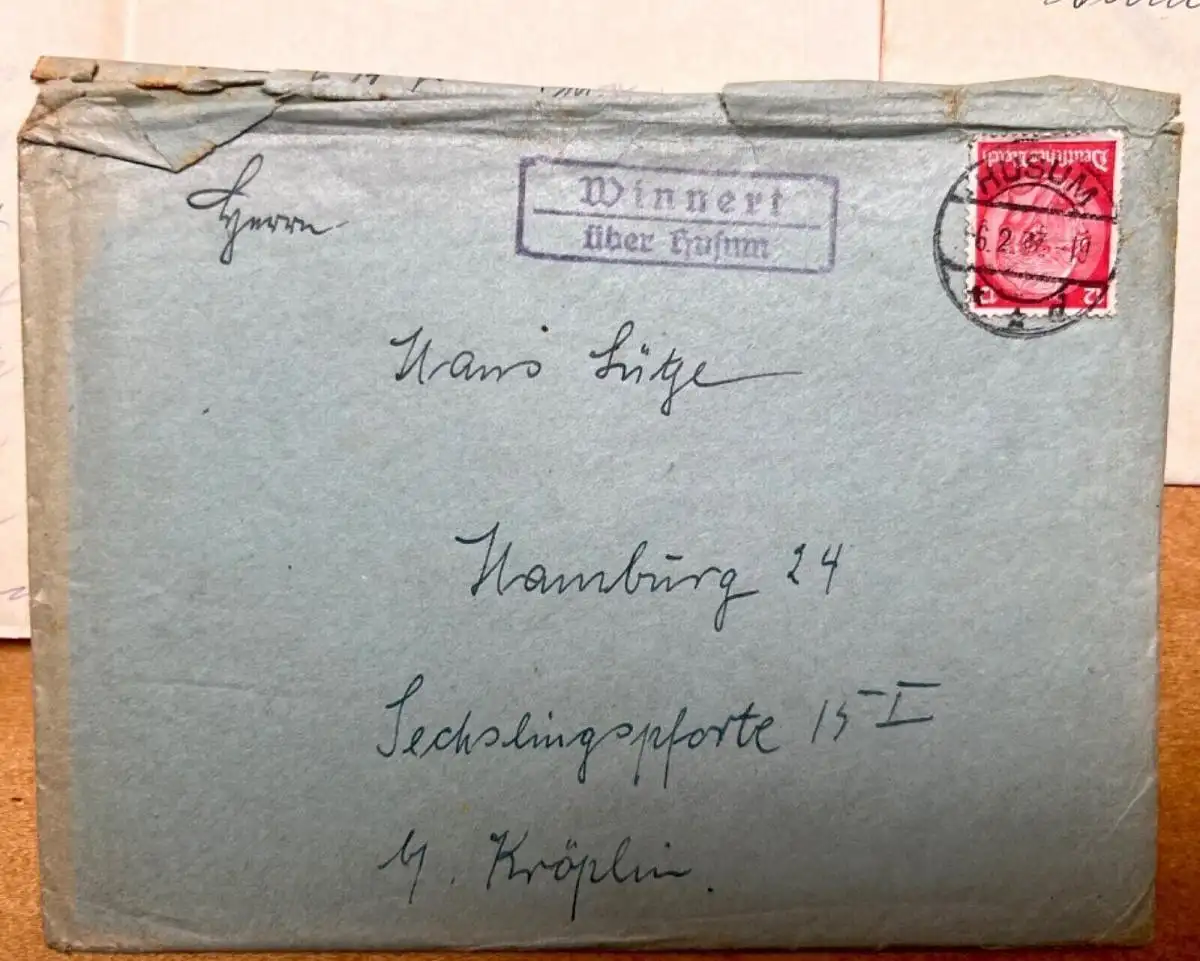 Herrn
Winnert
über Husum
Deutsches Reich
HUSUM
6.2.37.-19
d
12
Hans Lütze
Hamburg 24
Sechslingspforte 15 - I
b/. Kröplin.